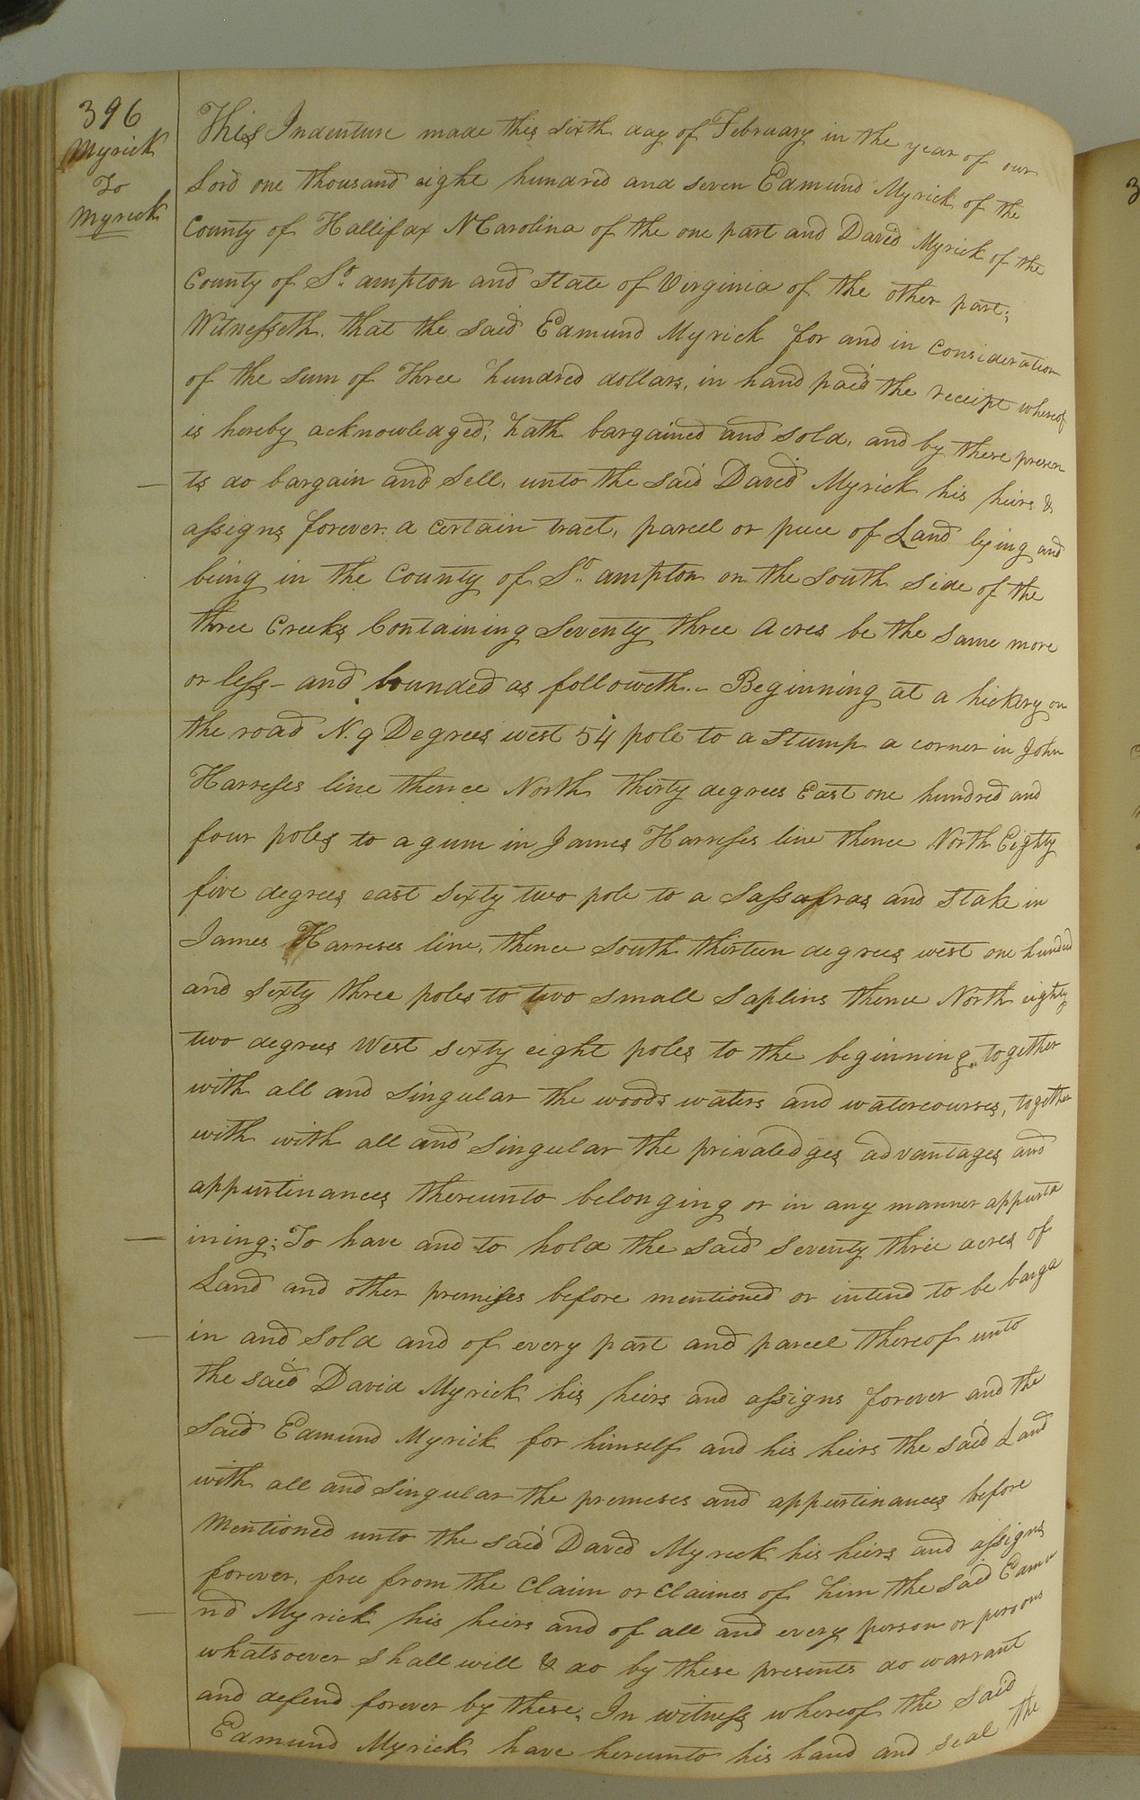 396
Myrick
To
Myrick
This Indenture made this sixth day of February in the year of our
Lord one thousand eight hundred and seven Edmund Myrick of the
County of Hallifax N Carolina of the one part and David Myrick of the
County of So. ampton and State of Virginia of the other part;
Witnesseth. that the said Edmund Myrick for and in consideration
of the sum of Three hundred dollars, in hand paid the receipt whereof
is hereby acknowledged; hath bargained and sold, and by these presen
ts do bargain and Sell, unto the said David Myrick his heirs &
assigns forever. a certain tract, parcel or piece of Land lying and
being in the County of So. ampton on the south side of the
three Creeks Containing Seventy three Acres be the same more
or less - and bounded as followeth. - Beginning at a hickery on
the road N. 9 Degrees west 54 pole to a Stump a corner in John
Harresses line thence North thirty degrees East one hundred and
four poles to a gum in James Harresses line thence North Eighty
five degrees east sixty two pole to a Sassafras and stake in
James Harreses line, thence south thirteen degrees west one hundred
and sixty three poles to two small Saplins thence North eighty
two degrees West sixty eight poles to the beginning, together
with all and singular the woods waters and watercourses, together
with with all and singular the privaledges advantages and
appurtinances thereunto belonging or in any manner appurta
ining; To have and to hold the said Seventy three acres of
Land and other premisses before mentioned or intend to be barga
in and sold and of every part and parcel thereof unto
the said David Myrick his heirs and assigns forever and the
said Edmund Myrick for himself and his heirs the said Land
with all and singular the premeses and appurtinances before
mentioned unto the said David Myrick his heirs and assigns
forever, free from the Claim or Claimes of him the said Edmu
nd Myrick his heirs and of all and every person or persons
whatsoever shall will & do by these presents do warrant
and defend forever by these; In witness whereof the said
Edmund Myrick have hereunto his hand and seal the